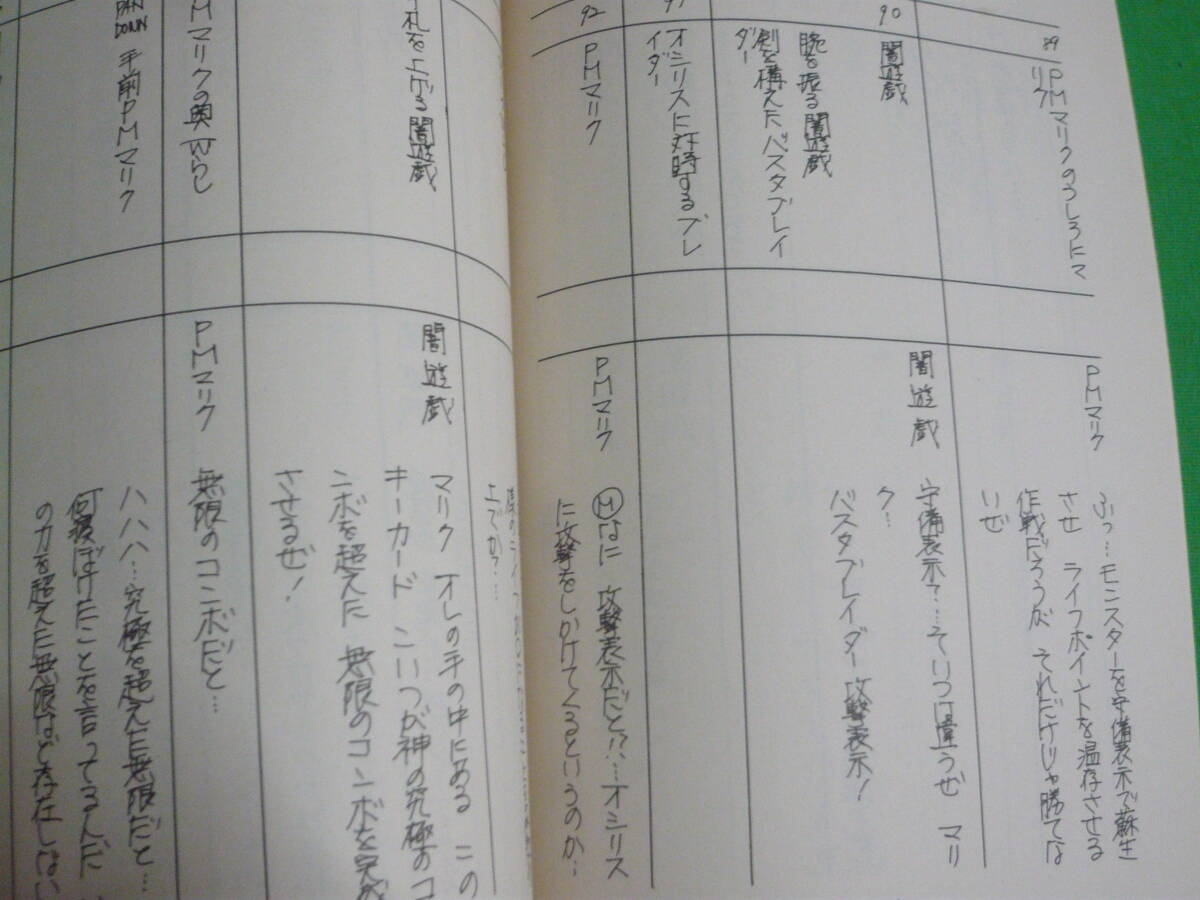 89
PMマリクのうしろにマ
リク
PMマリク
ふっ…モンスターを守備表示で蘇生
させ ライフポイントを温存させる
作戦だろうが それだけじゃ勝てな
いぜ
90
闇遊戯
腕を振る闇遊戯
剣を構えたバスタブレイ
ダー
闇遊戯
守備表示?…そいつは違うぜ マリ
ク…
バスタブレイダー攻撃表示!
91
オシリスに対峙するブレ
イダー
92
PMマリク
PMマリク
Ⓜなに 攻撃表示だと!?…オシリス
に攻撃をしかけてくるというのか…
上でか?…
札を上げる闇遊戯
闇遊戯
マリク オレの手の中にある この
キーカード こいつが神の究極のコ
ンボを超えた 無限のコンボを完成
させるぜ!
PMマリクの奥からし
PMマリク
無限のコンボだと…
PAN
DOWN
手前PMマリク
ハハハ…究極を超えた無限だと…
何寝ぼけたことを言ってるんだ
の力を超えた無限など存在しない